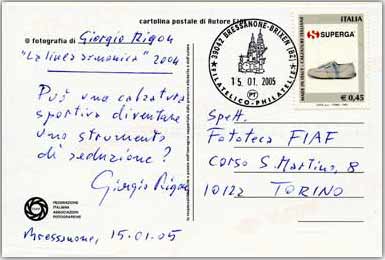 cartolina postale di Autore FIAF
© fotografia di Giorgio Rigon
"La linea armonica" 2004
Può una calzatura
sportiva diventare
uno strumento
di seduzione?
Giorgio Rigon
FEDERAZIONE
ITALIANA
ASSOCIAZIONI
FOTOGRAFICHE
Bressanone, 15.01.05
39042 BRESSANONE-BRIXEN (BZ)
15 01 2005
FILATELICO-PHILATELI
PT
ITALIA
SUPERGA
MADE IN ITALY
€ 0,45
Spett.
Fototeca FIAF
Corso S. Martino, 8
10122 TORINO